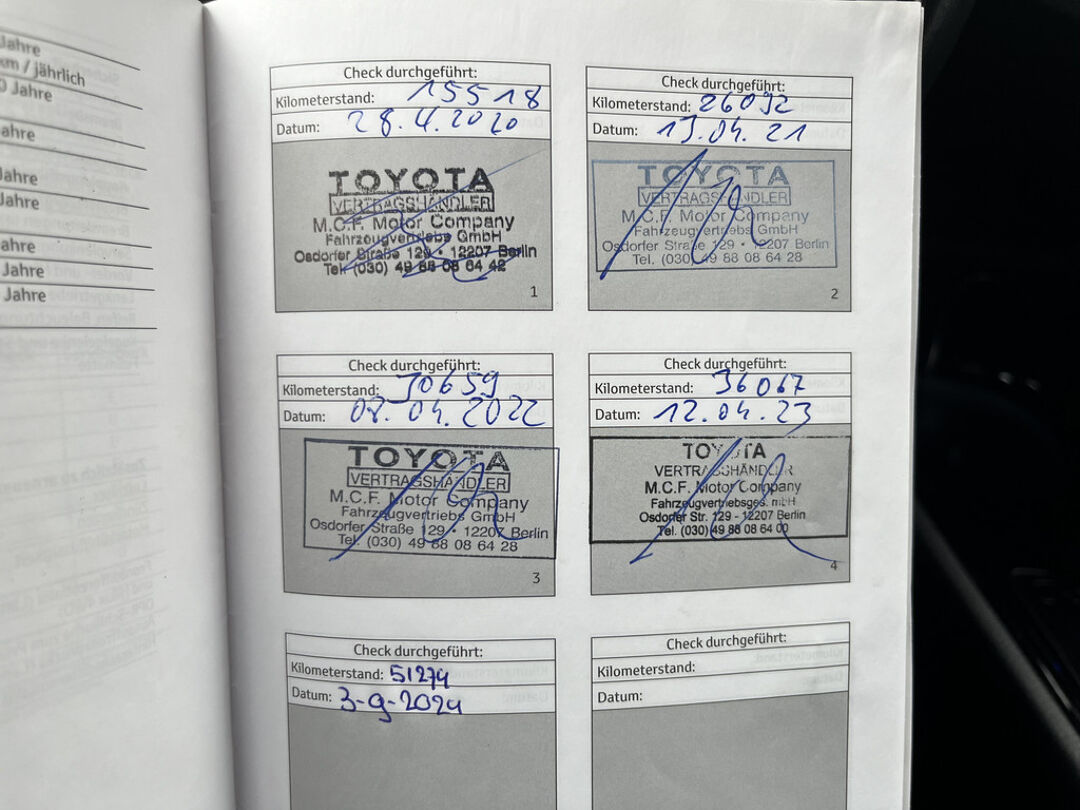 Jahre
km / jährlich
0 Jahre
ahre
Jahre
Jahre
ahre
Jahre
Jahre
Check durchgeführt:
Kilometerstand: 15518
Datum: 28.4.2020
TOYOTA
VERTRAGSHÄNDLER
M.C.F. Motor Company
Fahrzeugvertriebs GmbH
Osdorfer Straße 129 • 12207 Berlin
Tel. (030) 49 88 08 64 42
1
Check durchgeführt:
Kilometerstand: 26092
Datum: 13.04.21
TOYOTA
VERTRAGSHÄNDLER
M.C.F. Motor Company
Fahrzeugvertriebs GmbH
Osdorfer Straße 129 • 12207 Berlin
Tel. (030) 49 88 08 64 28
2
Check durchgeführt:
Kilometerstand: 30659
Datum: 08.04.2022
TOYOTA
VERTRAGSHÄNDLER
M.C.F. Motor Company
Fahrzeugvertriebs GmbH
Osdorfer Straße 129 • 12207 Berlin
Tel. (030) 49 88 08 64 28
3
Check durchgeführt:
Kilometerstand: 36067
Datum: 12.04.23
TOYOTA
VERTRAGSHÄNDLER
M.C.F. Motor Company
Fahrzeugvertriebsges. mbH
Osdorfer Str. 129 - 12207 Berlin
Tel. (030) 49 88 08 64 00
4
Check durchgeführt:
Kilometerstand: 51274
Datum: 3-9-2024
Check durchgeführt:
Kilometerstand:
Datum: